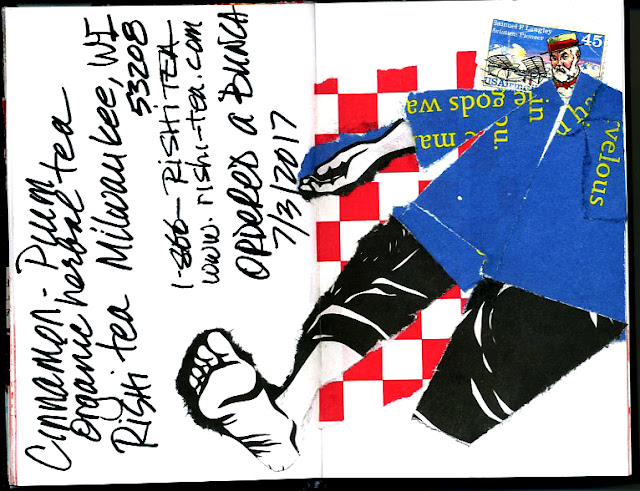 Cinnamon-Plum
organic herbal tea
RisHi tea Milwaukee, WI
53208
1-866-RISHITEA
www.rishi-tea.com
ORDERED A BUNCH
7/3/2017
Samuel P. Langley
Aviation Pioneer
45
USAirmail
gods wa
ma
ou.
in
velous